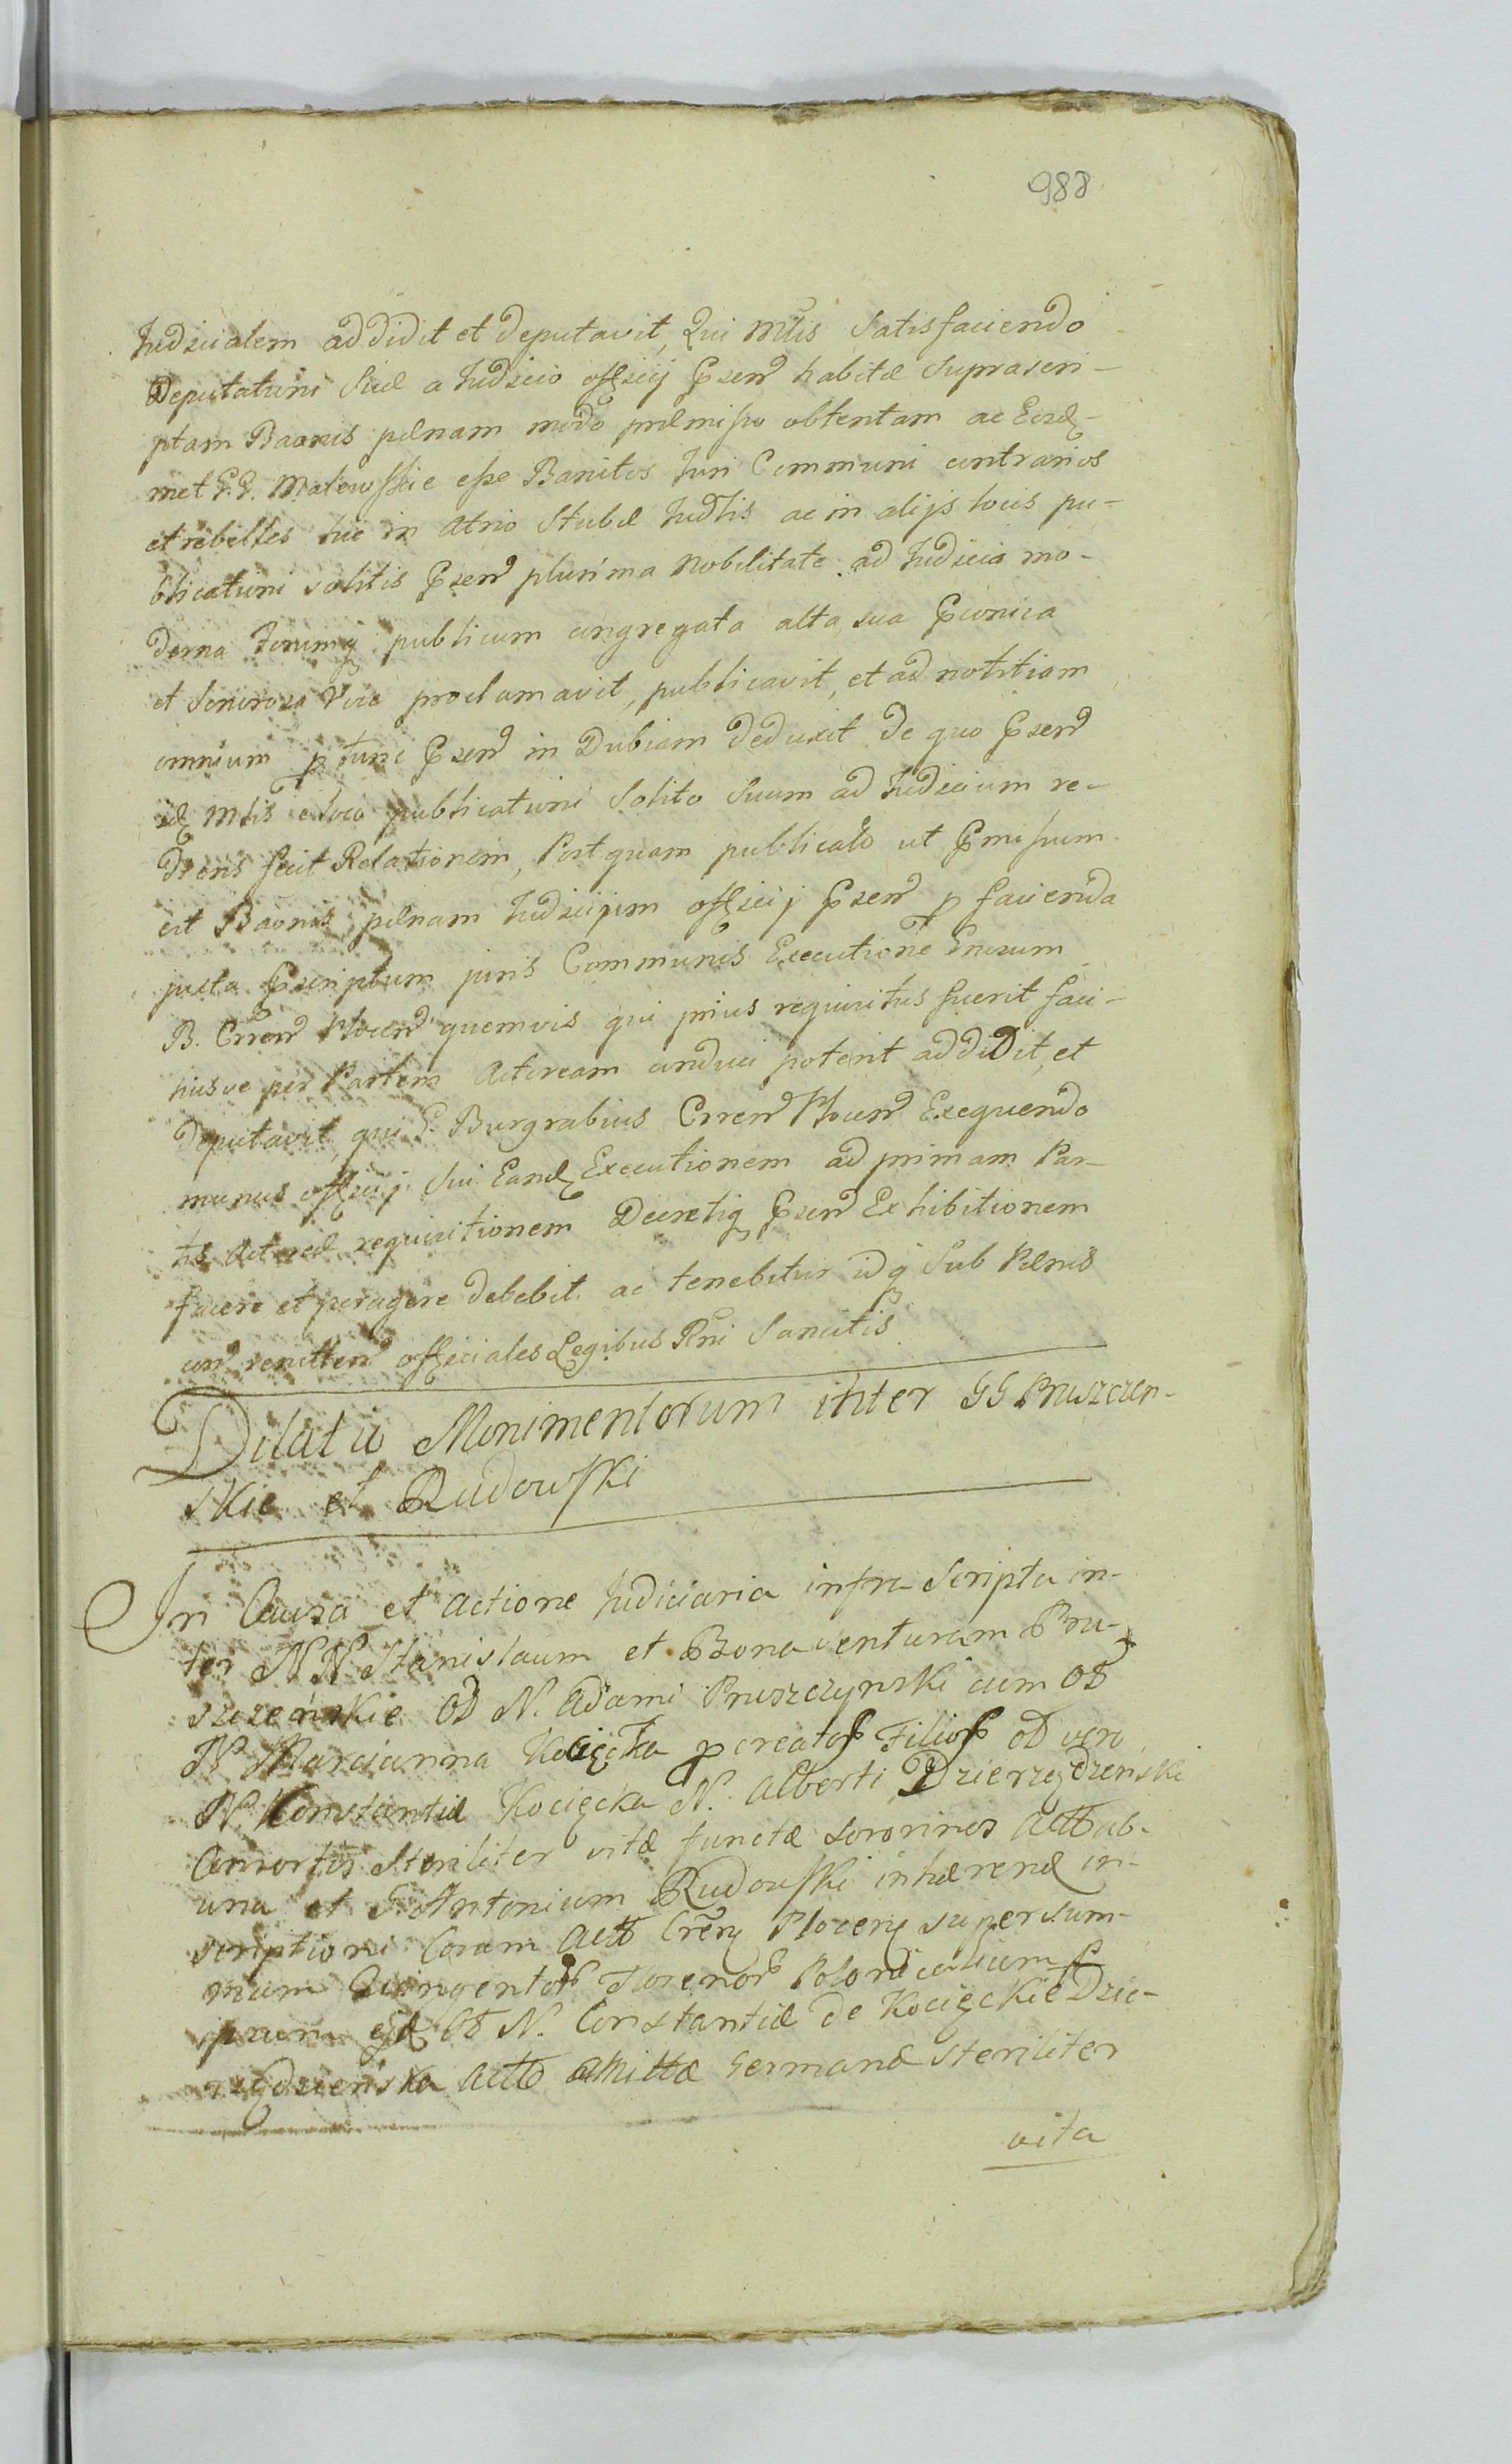 988
Judicialem addidit et deputavit, Qui Mtlis Satisfaciendo
Deputationi Suæ a Judicio officij Pzsend habitæ Suprascri-
ptam Baonis pænam modo præmisso obtentam ac Eosd-
met G.G. Malewskie esse Banitos Juri Communi contrarios
et rebelles hic in Atrio Stubæ Judlis ac in alijs locis pu-
blicationi solitis Pzsend plurima Nobilitate ad Judicia mo-
derna Forumq publicum congregata alta sua Pconica
et Sonorosa Voce proclamavit, publicavit, et ad notitiam
omnium p tunc Pzsend in Dubiam deduxit De quo Pzsend
idq Mtlis e loco publicationi Solito Suum ad Judicium re-
diens fecit Relationem, Post quam publicato ut Pmissum
est Baonis pænam Judicium officij Pzsend p facienda
juxta Pscriptum juris Communis Executione Gnosum
B. Crren Plocen quemvis qui prius requisitus fuerit faci-
liusve per Partem Actoream conduci poterit addidit, et
deputavit, qui G. Burgrabius Crren Plocen Exequendo
munus officij Sui Eand Executionem ad primam Par-
tis Actoreæ requisitionem Decretiq Pzsend Exhibitionem
facere et peragere debebit ac tenebitur idq Sub Pænis
con renitten officiales Legibus Rni Sancitis
Dilatio Monimentorum inter GG Pruszczen-
skie et Rudowski
In Causa et Actione Judiciaria infra Scripta in-
ter NN Stanislaum et Bonaventuram Pru-
szczeńskie Ol N. Adami Pruszczynski cum Ol
N Marcianna Kocięcka pcreatos Filios ol vero
N. Konstantiæ Kocięcka N. Alberti Dzierzędzenski
Consortis Steriliter vitæ functæ Sororinos Actt ab-
una et G. Antonium Rudowski inhærend in-
scriptioni Coram Actt Cren Plocen super sum-
mam Quingentor Florenor Polonicalium p
psum Ol N. Constantiæ de Kocięckie Dzie-
rzędzenska Actt Amittæ Germanæ Steriliter
vita